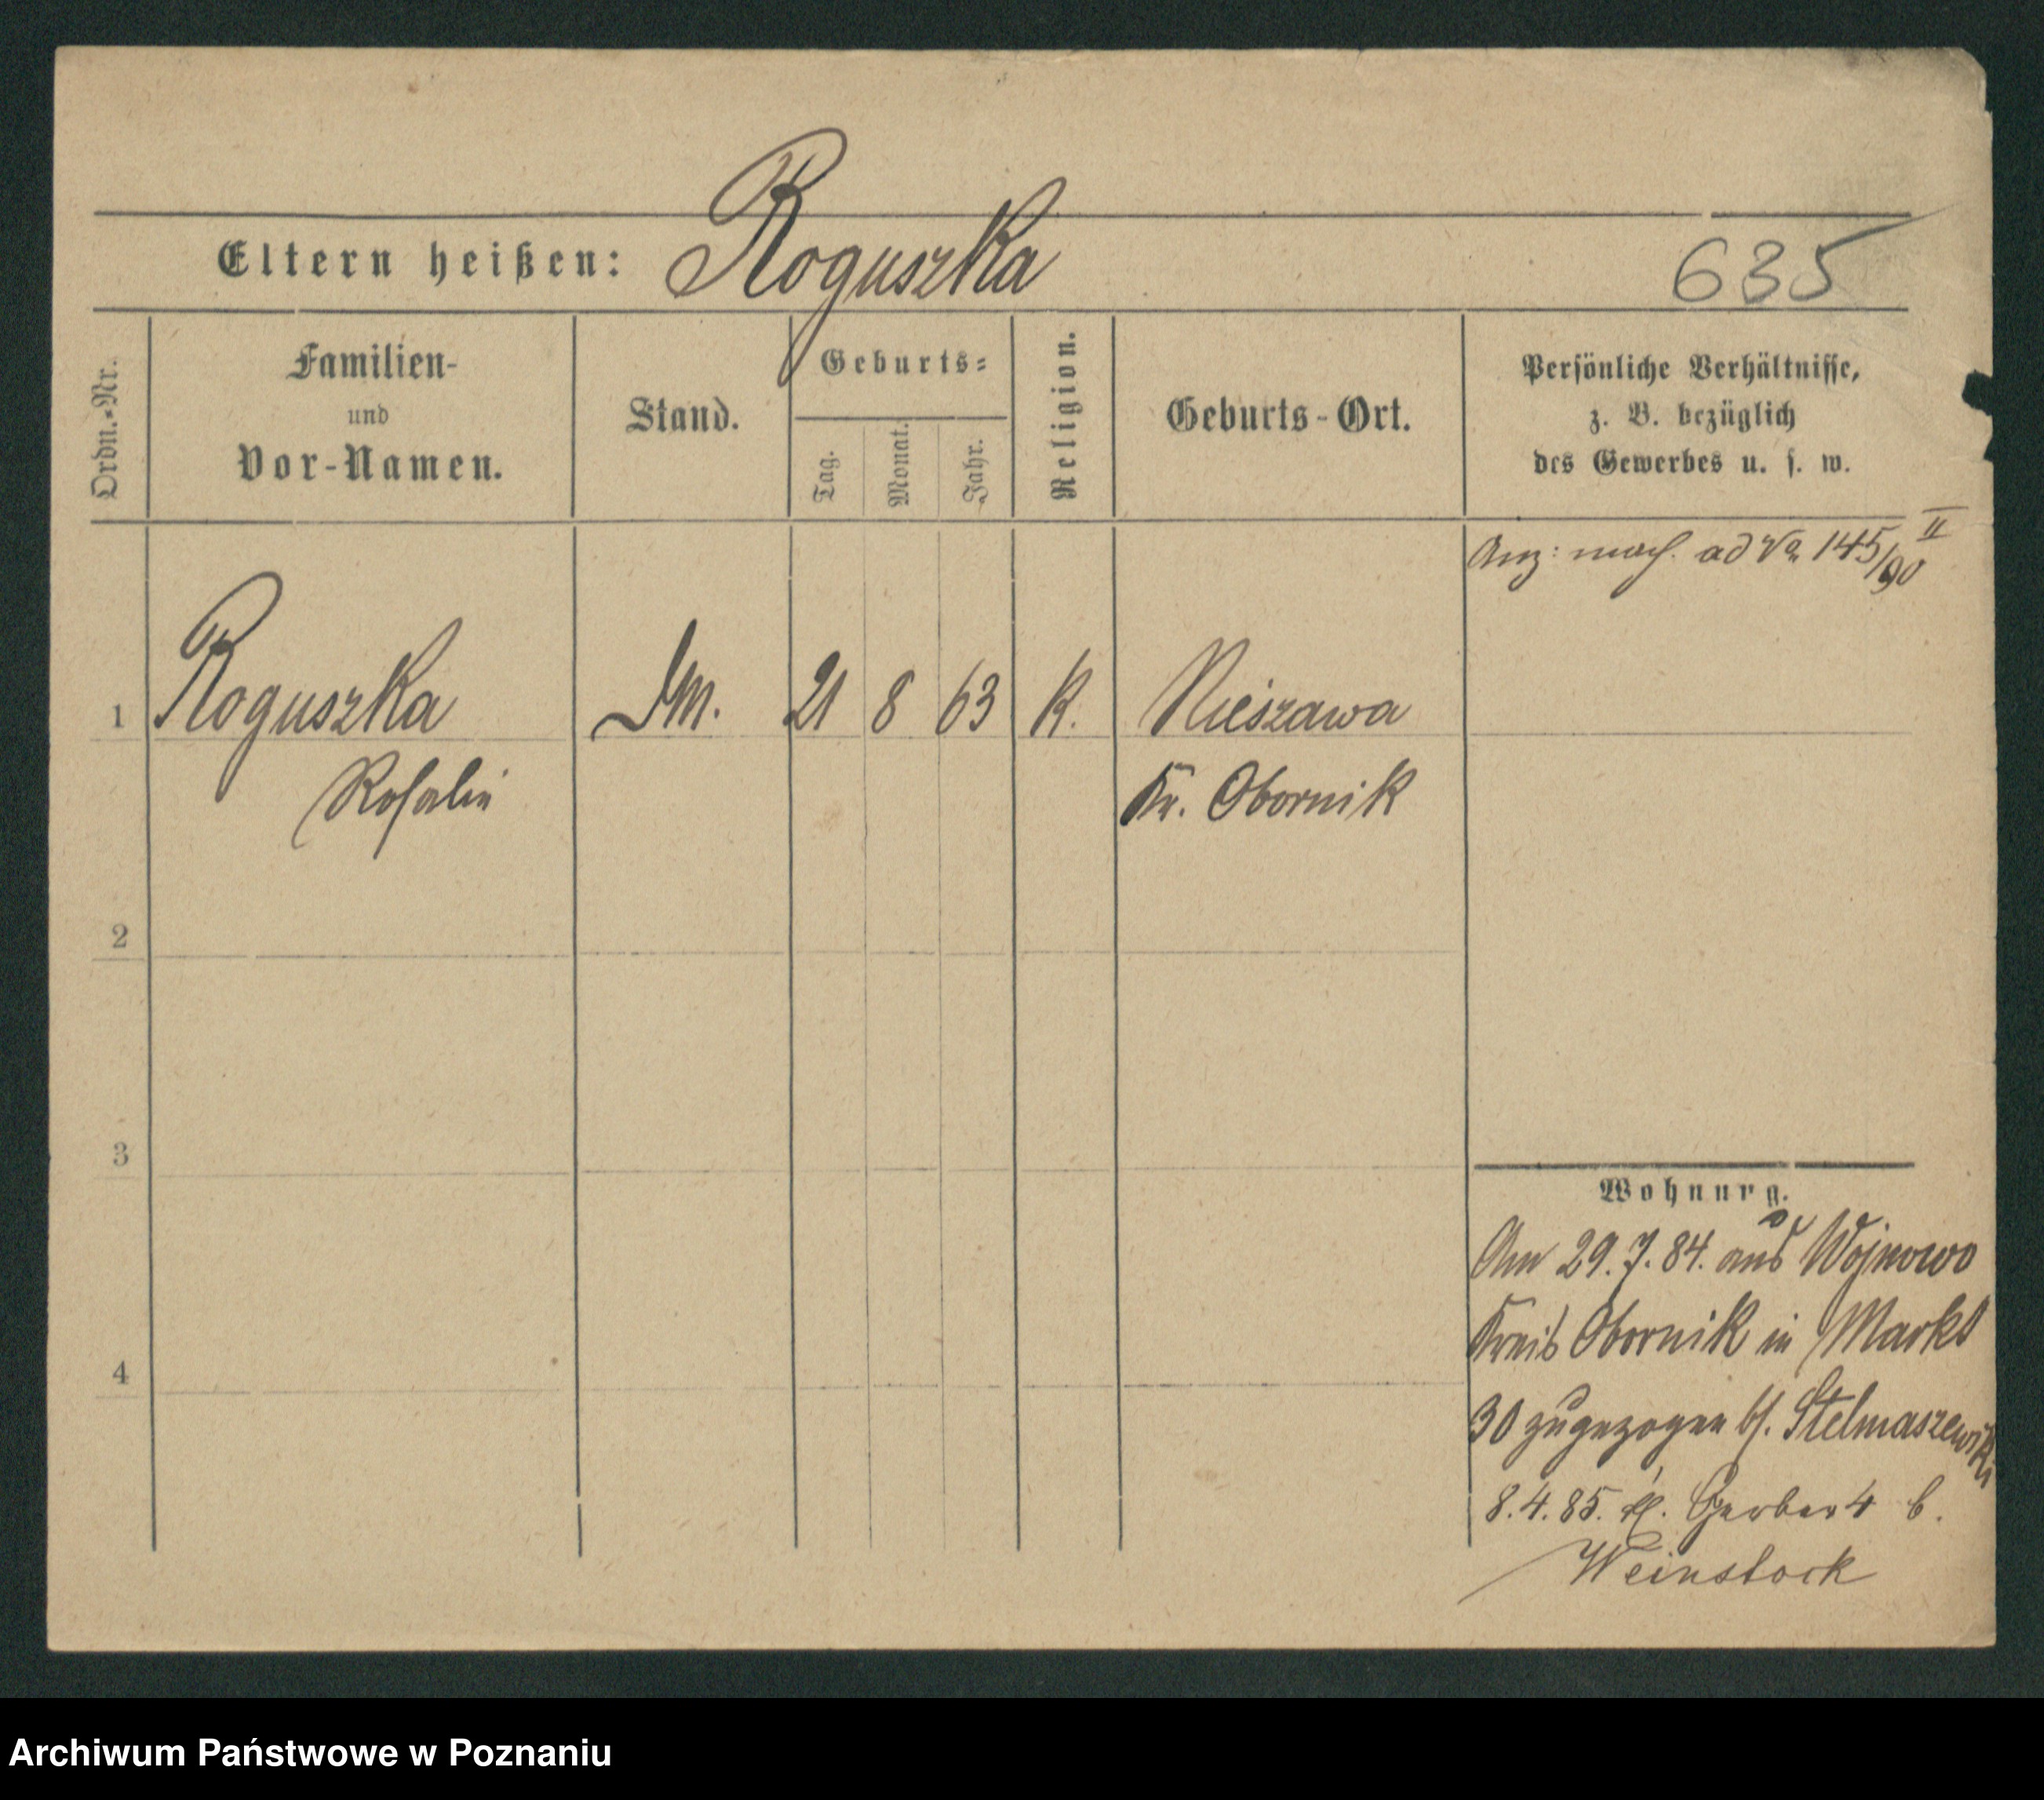 Eltern heißen: Roguszka
635
Ordn.-Nr.
Familien-
und
Vor-Namen.
Stand.
Geburts-
Tag.
Monat.
Jahr.
Religion.
Geburts-Ort.
Persönliche Verhältnisse,
z. B. bezüglich
des Gewerbes u. s. w.
Anz: ad 145/90 II
1 Roguszka 21 8 63 K. Nieszawa
Rosalie Kr. Obornik
2
3
4
Wohnung.
Am 29.7.84. aus Wojnowo
Kreis Obornik in Markt
30 zugezogen b/. Stelmaszewski
8.4.85. Kl. Gerber 4 b.
Weinstock
Archiwum Państwowe w Poznaniu